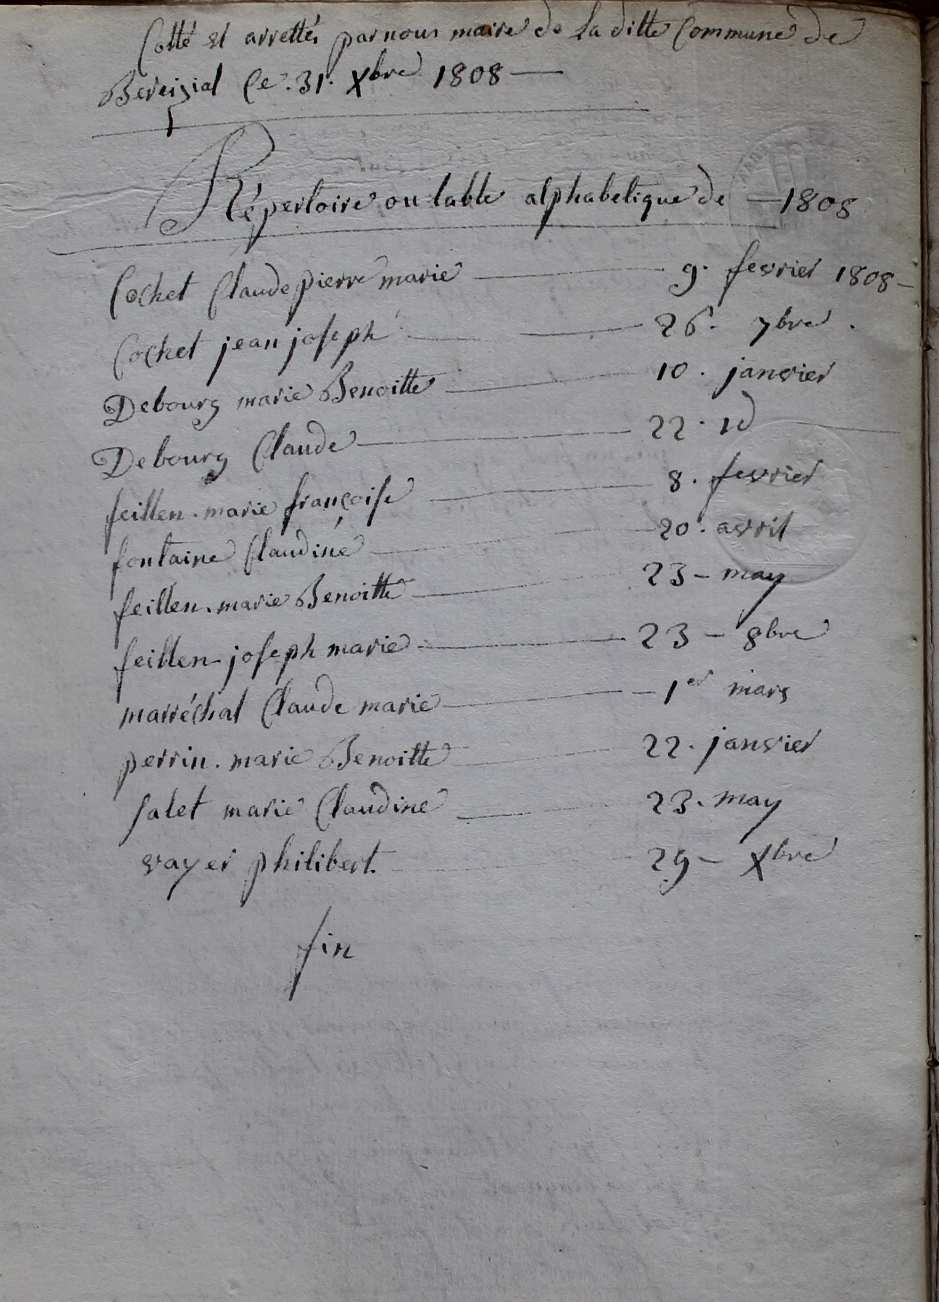 Cotté et arrettés par nous maire de La ditte Commune de
Bereizial Ce. 31. Xbre 1808 —
Répertoire ou table alphabetique de — 1808
Cochet Claude pierre marie — 9. fevrier 1808 —
Cochet jean joseph — 26. 7bre .
Debourg marie Benoitte — 10. janvier
Debourg Claude — 22. id
feillen. marie françoise — 8. fevrier
fontaine Claudine — 20. avril
feillen. marie Benoitte — 23 — may
feillen joseph marie — 23 — 8bre
marréchal Claude marie — 1er mars
perrin. marie Benoitte — 22. janvier
salet marie Claudine — 23. may
vayer philibert. — 29 — Xbre
fin